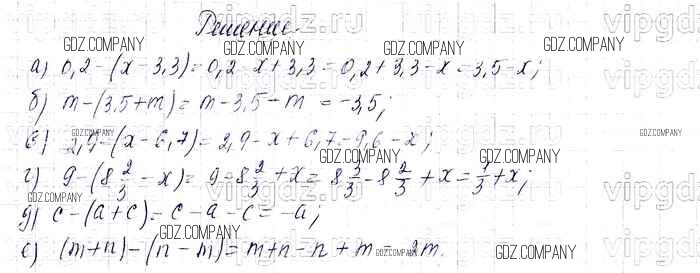 Решение.
а) 0,2-(x-3,3)=0,2-x+3,3=0,2+3,3-x=3,5-x;
б) m-(3,5+m)=m-3,5-m=-3,5;
в) 2,9-(x-6,7)=2,9-x+6,7=9,6-x;
г) 9-(8 2/3-x)=9-8 2/3+x=8 3/3-8 2/3+x=1/3+x;
д) c-(a+c)=c-a-c=-a;
е) (m+n)-(n-m)=m+n-n+m=2m.
GDZ.COMPANY
GDZ.COMPANY
GDZ.COMPANY
GDZ.COMPANY
GDZ.COMPANY
GDZ.COMPANY
GDZ.COMPANY
GDZ.COMPANY
GDZ.COMPANY
GDZ.COMPANY
GDZ.COMPANY
GDZ.COMPANY